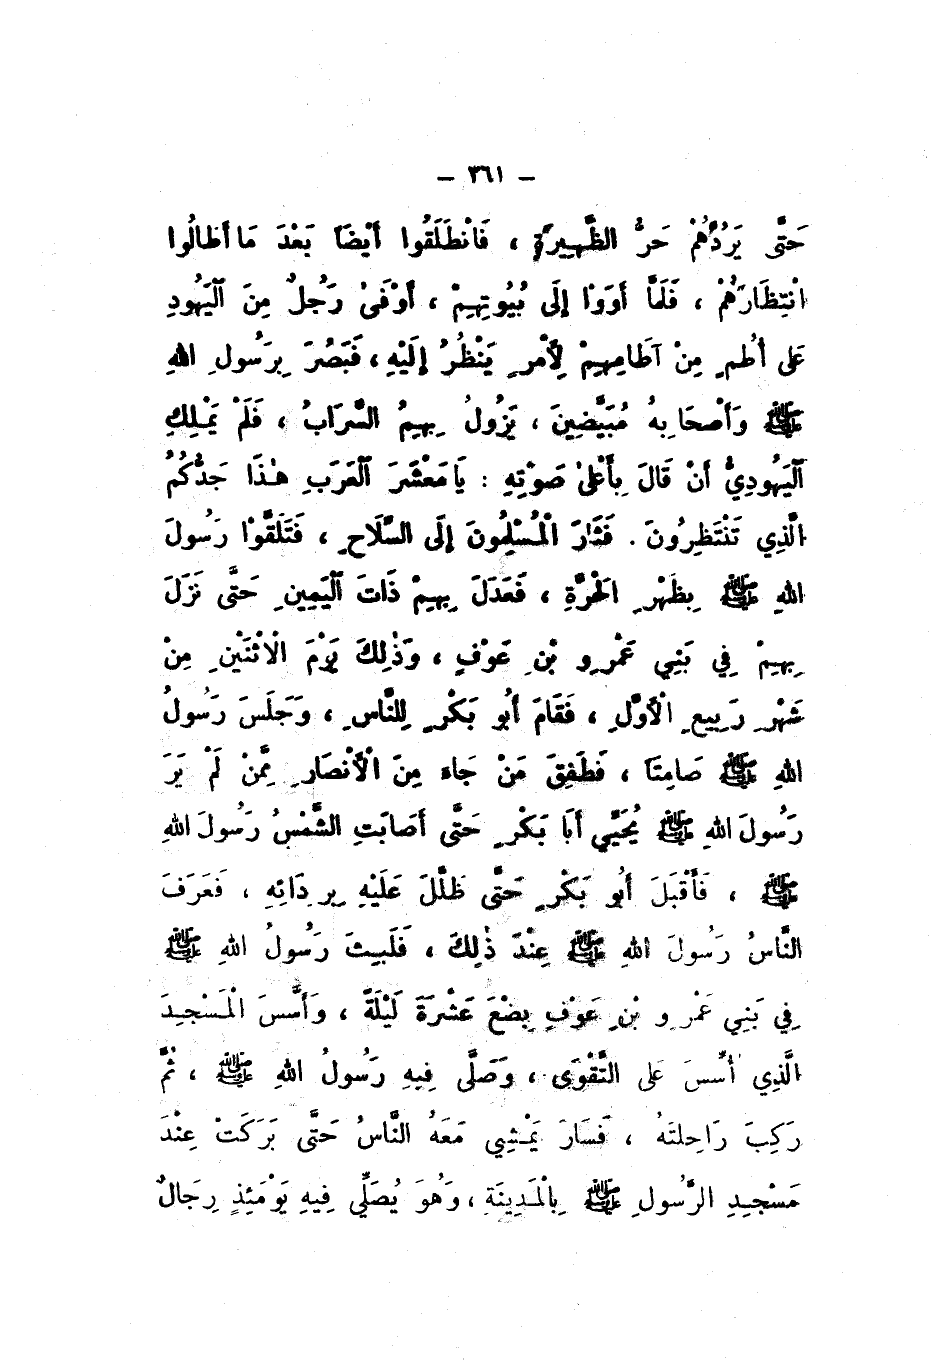 – ٣٦١ –
حَتَّى يَرُدَّهُمْ حَرُّ الظَّهِيرَةِ ، فَانْطَلَقُوا أَيْضًا بَعْدَ مَا أَطَالُوا
انْتِظَارَهُمْ ، فَلَمَّا أَوَوْا إِلَى بُيُوتِهِمْ ، أَوْفَىٰ رَجُلٌ مِنَ ٱلْيَهُودِ
عَلَى أُطُمٍ مِنْ آطَامِهِمْ لِأَمْرٍ يَنْظُرُ إِلَيْهِ ، فَبَصُرَ بِرَسُولِ اللهِ
ﷺ وَأَصْحَابِهُ مُبَيَّضِينَ ، يَزُولُ بِهِمُ السَّرَابُ ، فَلَمْ يَمْلِكِ
ٱلْيَهُودِيُّ أَنْ قَالَ بِأَعْلىٰ صَوْتِهِ : يَا مَعْشَرَ ٱلْعَرَبِ هٰذَا جَدُّكُمُ
الَّذِي تَنْتَظِرُونَ . فَثَارَ الْمُسْلِمُونَ إِلَى السِّلَاحِ ، فَتَلَقَّوْا رَسُولَ
اللهِ ﷺ بِظَهْرِ الْحَرَّةِ ، فَعَدَلَ بِهِمْ ذَاتَ ٱلْيَمِينِ حَتَّى نَزَلَ
بِهِمْ فِي بَنِي عَمْرِو بْنِ عَوْفٍ ، وَذٰلِكَ يَوْمَ الْاثْنَيْنِ مِنْ
شَهْرِ رَبِيعٍ الْأَوَّلِ ، فَقَامَ أَبُو بَكْرٍ لِلنَّاسِ ، وَجَلَسَ رَسُولُ
اللهِ ﷺ صَامِتًا ، فَطَفِقَ مَنْ جَاءَ مِنَ الْأَنْصَارِ مِمَّنْ لَمْ يَرَ
رَسُولَ اللهِ ﷺ يُحَيِّي أَبَا بَكْرٍ حَتَّى أَصَابَتِ الشَّمْسُ رَسُولَ اللهِ
ﷺ ، فَأَقْبَلَ أَبُو بَكْرٍ حَتَّى ظَلَّلَ عَلَيْهِ بِرِدَائِهِ ، فَعَرَفَ
النَّاسُ رَسُولَ اللهِ ﷺ عِنْدَ ذٰلِكَ ، فَلَبِثَ رَسُولُ اللهِ ﷺ
فِي بَنِي عَمْرِو بْنِ عَوْفٍ بِضْعَ عَشْرَةَ لَيْلَةً ، وَأَسَّسَ الْمَسْجِدَ
الَّذِي أُسِّسَ عَلَى التَّقْوَى ، وَصَلَّى فِيهِ رَسُولُ اللهِ ﷺ ، ثُمَّ
رَكِبَ رَاحِلَتَهُ ، فَسَارَ يَمْشِي مَعَهُ النَّاسُ حَتَّى بَرَكَتْ عِنْدَ
مَسْجِدِ الرَّسُولِ ﷺ بِالْمَدِينَةِ ، وَهُوَ يُصَلِّي فِيهِ يَوْمَئِذٍ رِجَالٌ